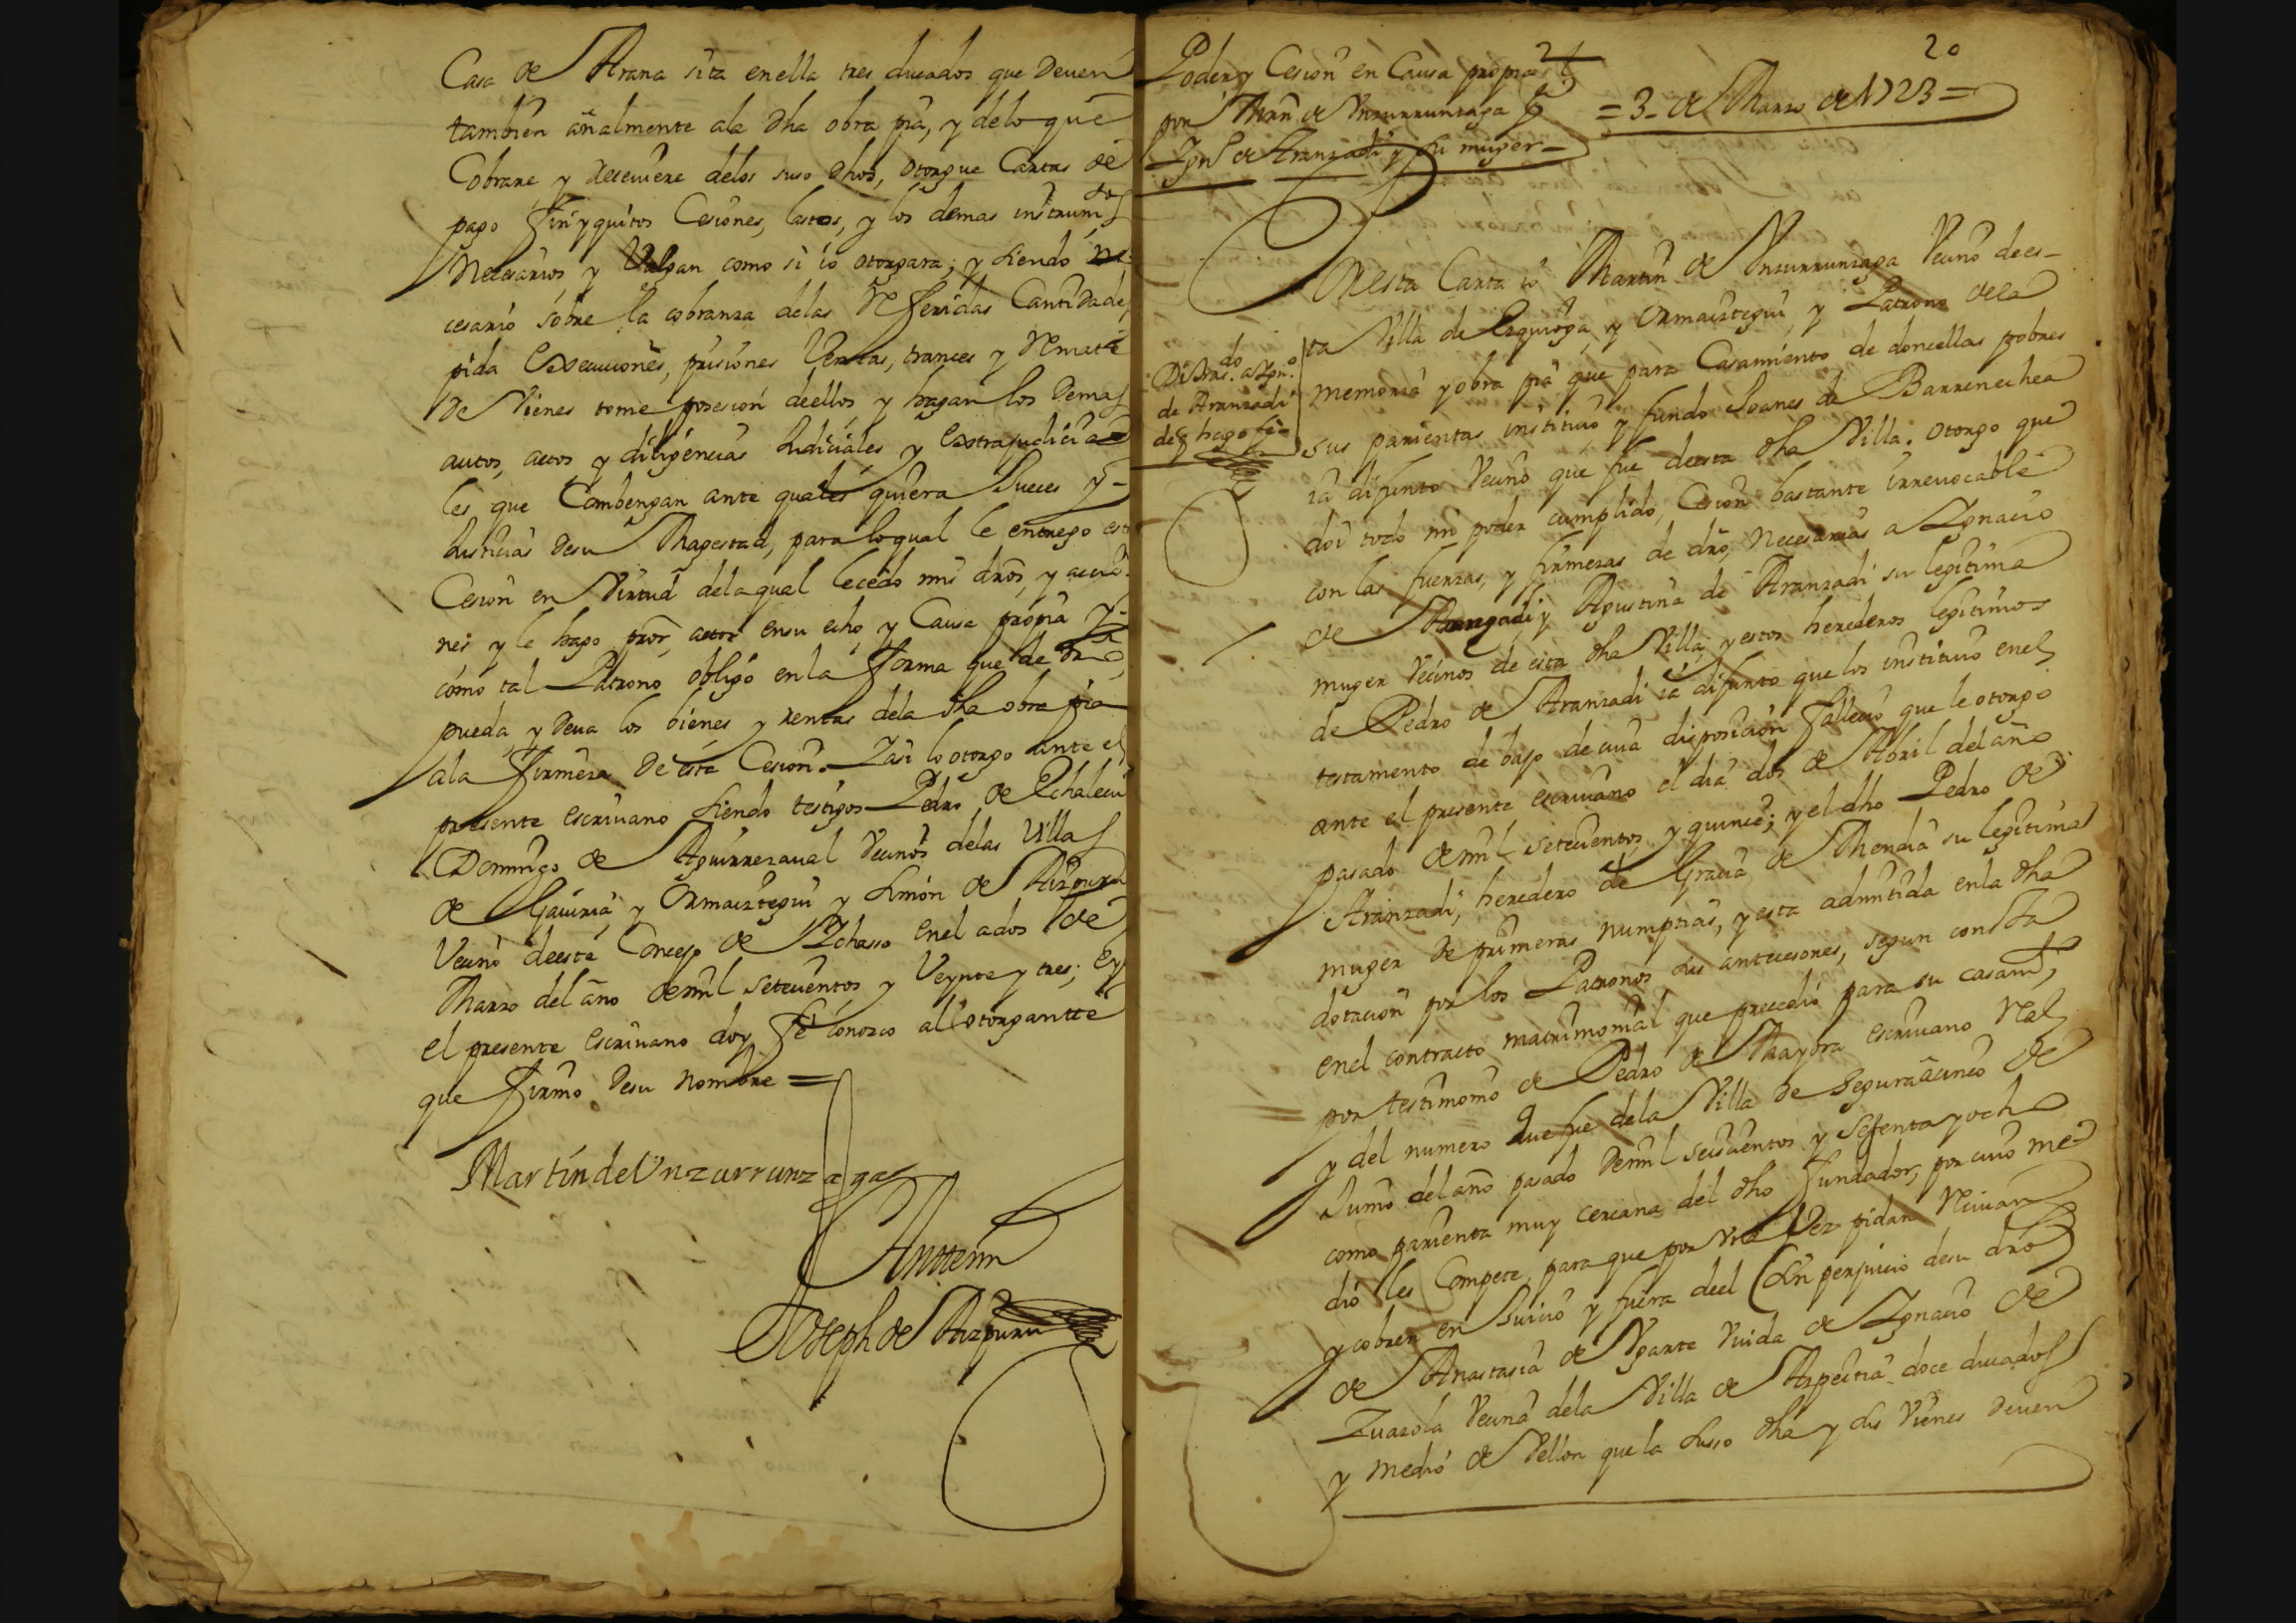 Casa de Arana sita enella tres ducados que Deven
tambien añalmente ala dha obra pia, y delo que
Cobrare y Receviere delos suso dhos, otorgue Cartas de
pago finyquitos Cesiones, lastos, y los demas instrumtos
Necesarios, y Valgan como si io otorgara; y siendo ne-
cesario sobre la cobranza delas Referidas Cantidades,
pida Execuciones, prisiones Ventas, trances y Remate
De Vienes tome posesion deellos y hagan los Demas
autos, actos y diligencias Judiciales y Extrajudicia-
les que Combengan ante quales quiera Jueces y-
Justicias Desu Magestad, para loqual le entrego esta
Cesion en Virtud delaqual lecedo mis dros, y accio-
nes y le hago pror, actor ensu echo y Causa propia y-
como tal Patrono obligo enla forma que de dro
pueda y Deva los bienes y rentas dela dha obra pia
ala firmeza De esta Cesion. Yasi lo otorgo ante el
presente escrivano siendo testigos Pedro de Echalecu
Domingo de Aguirrezaval Vecinos delas Villas
de Gaviria y Ormaiztegui y Simon de Aizpuru
Vecino deeste Concejo de Ychasso enel ados de
Marzo del año demil setecientos y Veynte y tres; Ey
el presente escrivano doy fe conozco al otorgantte
que firmo Desu Nombre =
Martín de Vnzurrunzaga
Antemi
Joseph de Aizpuru
20
Poder y Cesion en Causa propia
por Mrn de Vnzurrunzaga
Ygno de Aranzadi y su muger =
= 3 - de Marzo de 1723 =
Di tras.do a Ygn.o
de Aranzadi
deq hago fe =
Por esta Carta io Martin de Vnzurrunzaga Vecino dees-
ta Villa de Ezquioga, y Ormaiztegui, y Patrono dela
memoria y obra pia que para Casamiento de doncellas pobres
sus parientas instituio y fundo Joanes de Barrenechea
ia difunto Vecino que fue deesta dha Villa. otorgo que
doi todo mi poder cumplido, Cesion bastante irrevocable
con las fuerzas, y firmezas de dro, Necesarias a Ygnacio
de Aranzadi y Agustina de Aranzadi su legitima
muger Vecinos de esta dha Villa, y estos herederos legitimos
de Pedro de Aranzadi ia difunto que los instituio enel
testamento de bajo de cuia disposicion fallecio que le otorgo
ante el presente escrivano el dia dos de Abril del año
pasado demil setecientos y quince; y el dho Pedro de
Aranzadi, heredero de Gracia de Mendia su legitima
muger de primeras numptias, y esta admitida enla dha
dotacion por los Patronos sus antecesores, segun consta
enel contracto matrimonial que precedio para su casamto,
por testimonio de Pedro de Mayora escrivano Real
y del numero que fue dela Villa de Segura acinco de
Junio del año pasado Demil seiscientos y setenta y ocho
como parienta muy cercana del dho fundador, por cuio me-
dio les Compete, para que por Via Vez pidan Recivan
y cobren en Juicio y fuera deel (sin perjuicio desu dro)
de Anastasia de Ygarte Viuda de Ygnacio de
Zuazola Vecina dela Villa de Azpeitia doce ducados
y medio de Vellon que la susso dha y sus Vienes Deven